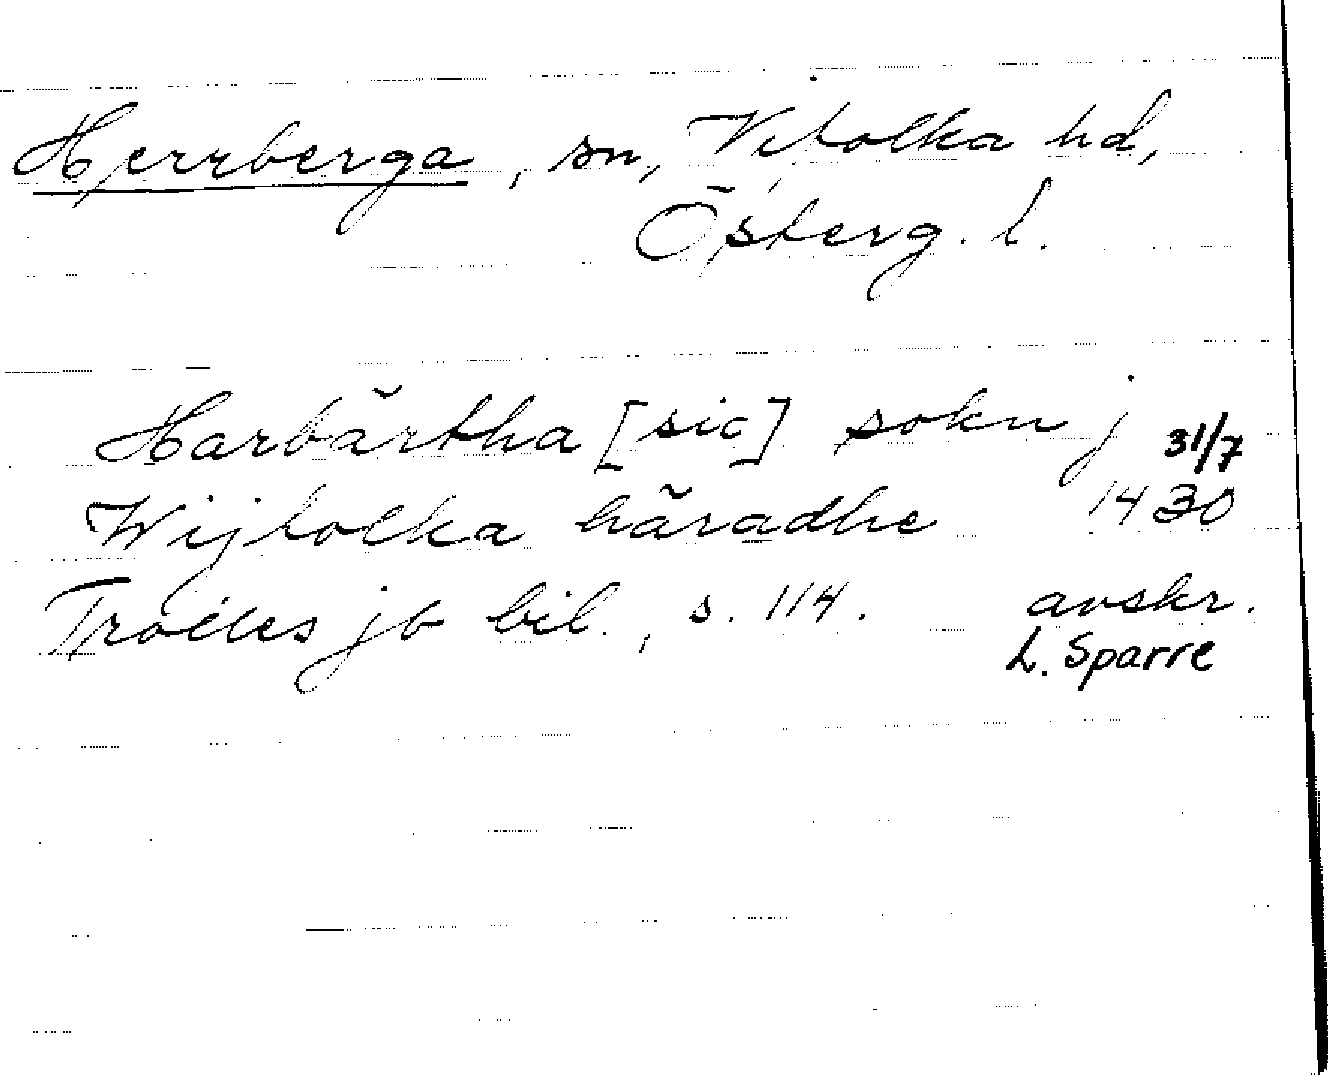 Herrberga, sn, Vifolka hd,
Österg. l.
Harbärtha [sic] sokn j 31/7
Wijfolka häradhe 1430
Trolles jb bil., s. 114. avskr.
L. Sparre